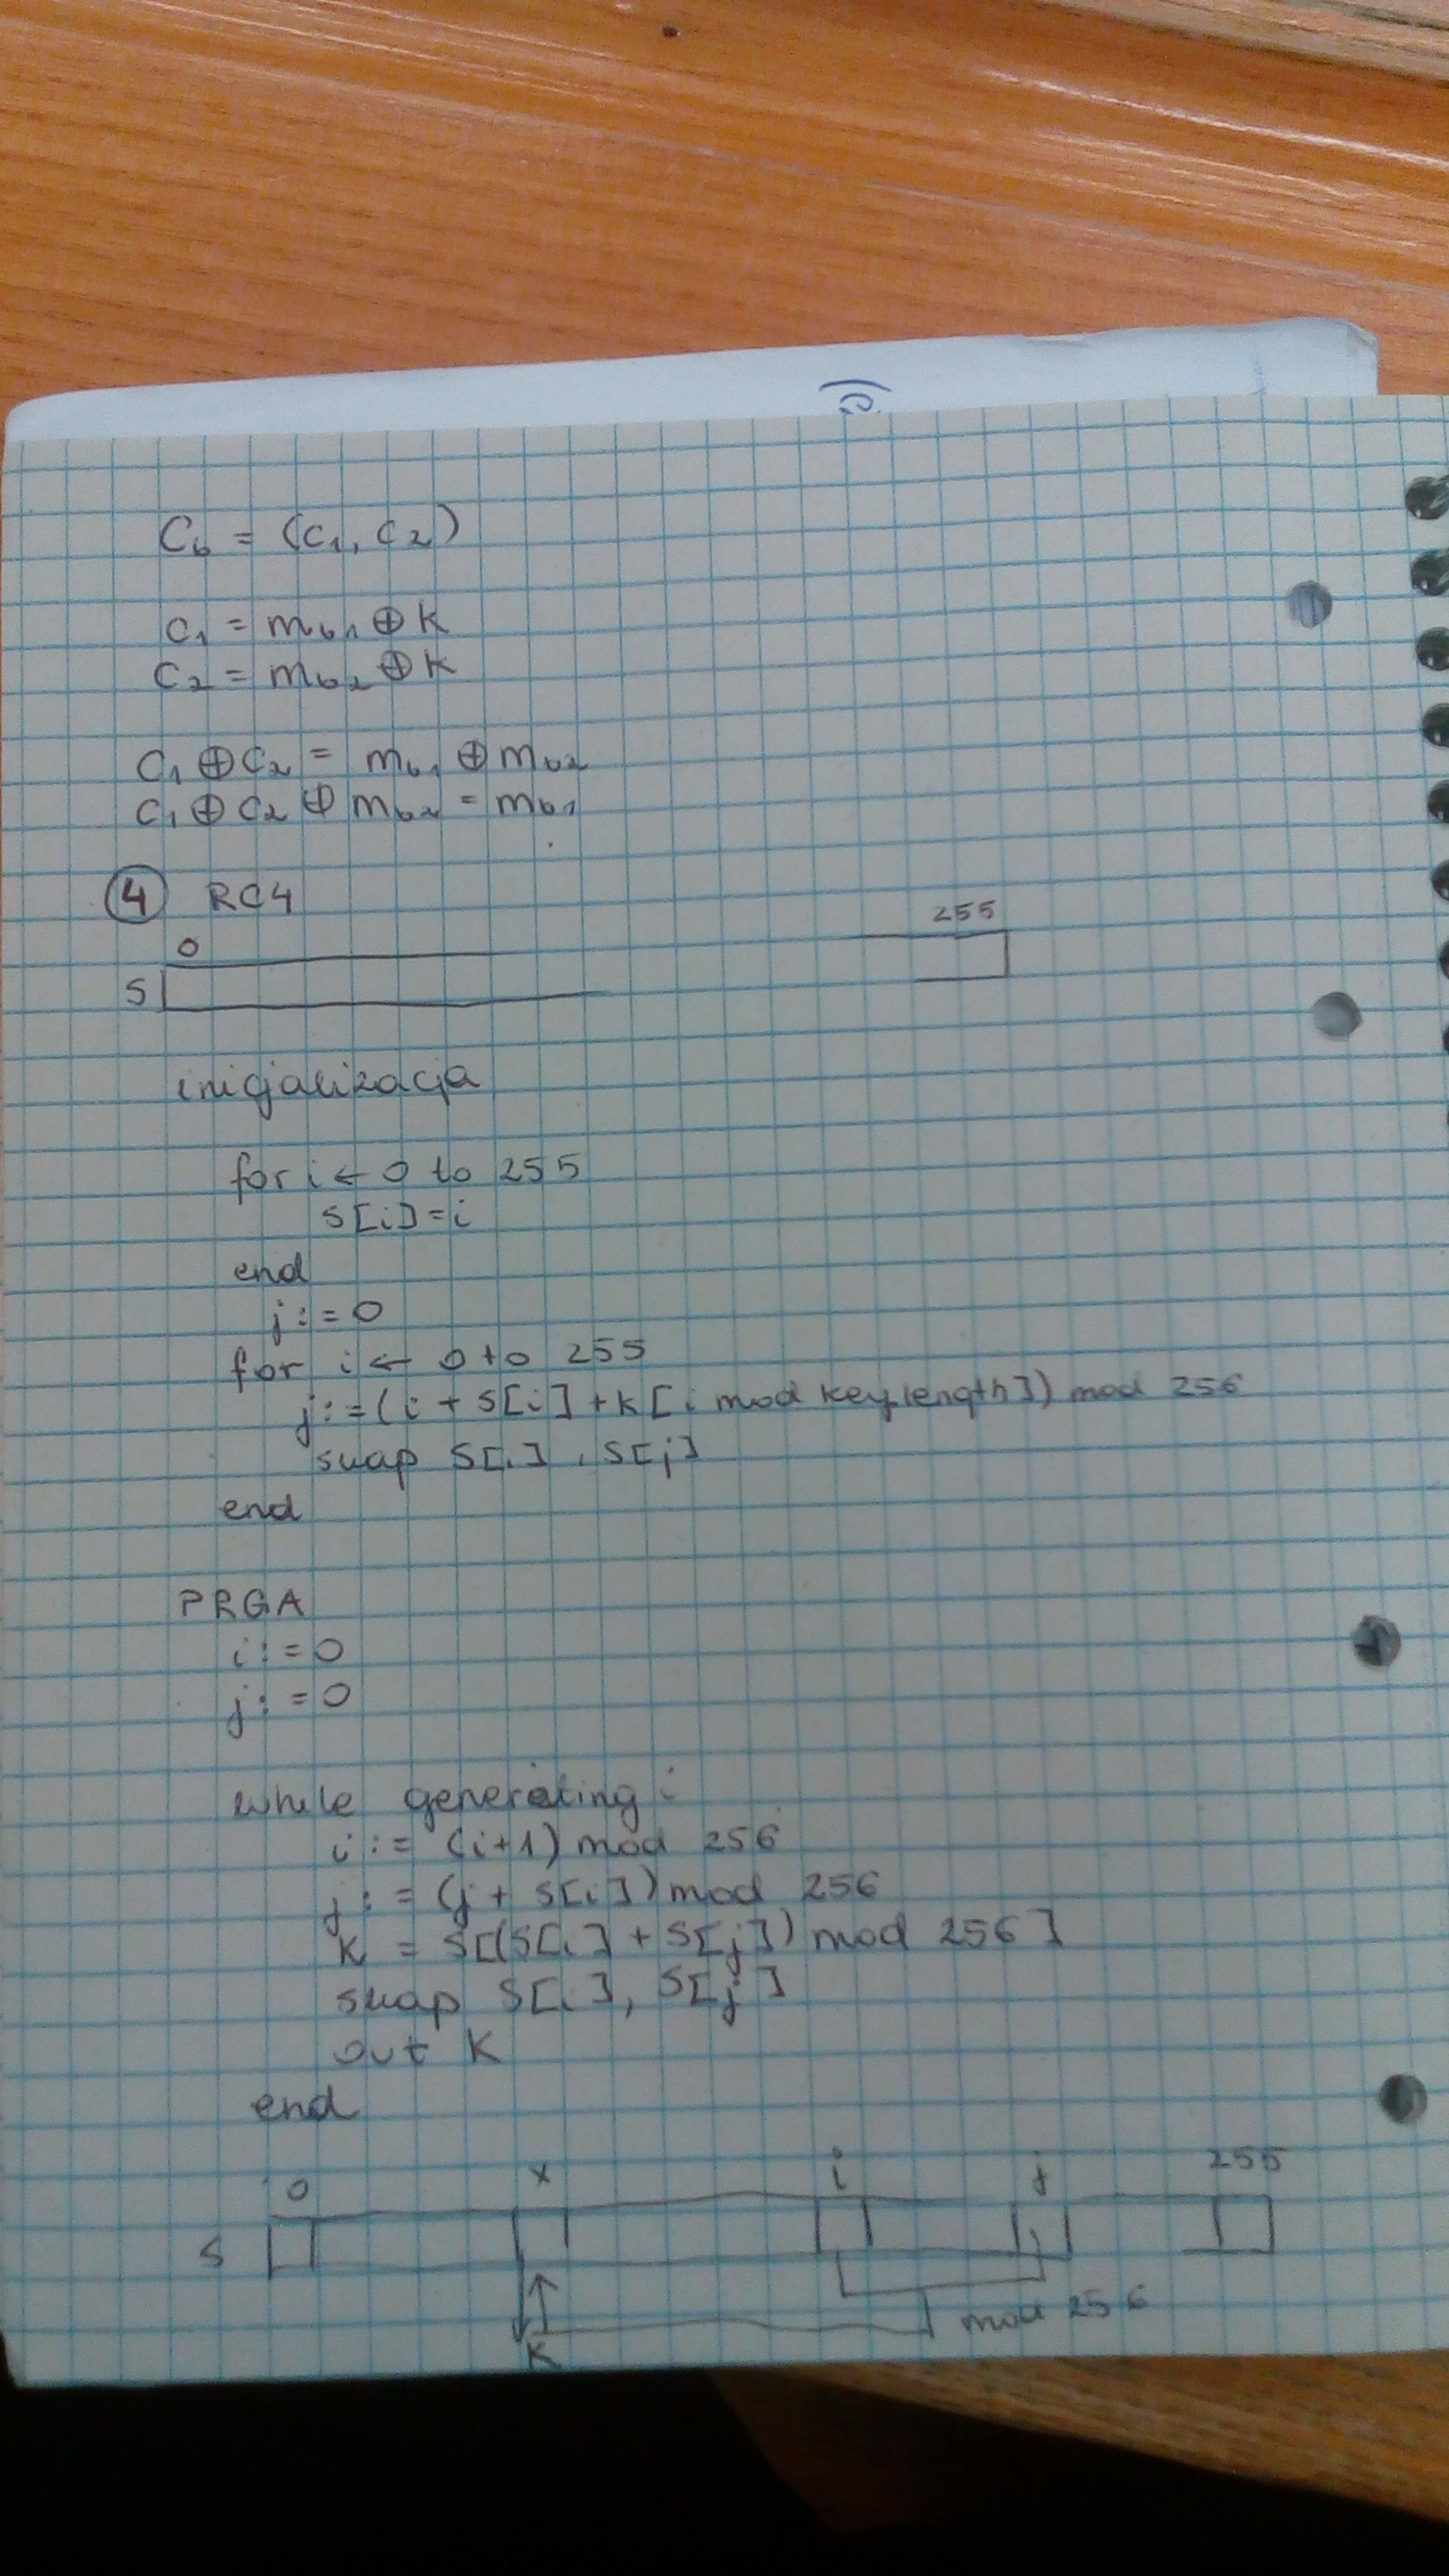 C_b = (C₁, C₂)
C₁ = m_b₁ ⊕ K
C₂ = m_b₂ ⊕ K
C₁ ⊕ C₂ = m_b₁ ⊕ m_b₂
C₁ ⊕ C₂ ⊕ m_b₂ = m_b₁
④ RC4
0 255
S
inicjalizacja
for i ← 0 to 255
S[i] = i
end
j := 0
for i ← 0 to 255
j := (i + S[i] + K[i mod keylength]) mod 256
swap S[i], S[j]
end
PRGA
i := 0
j := 0
while generating :
i := (i+1) mod 256
j := (j + S[i]) mod 256
K = S[(S[i] + S[j]) mod 256]
swap S[i], S[j]
out K
end
0 x i j 255
S
mod 256
K